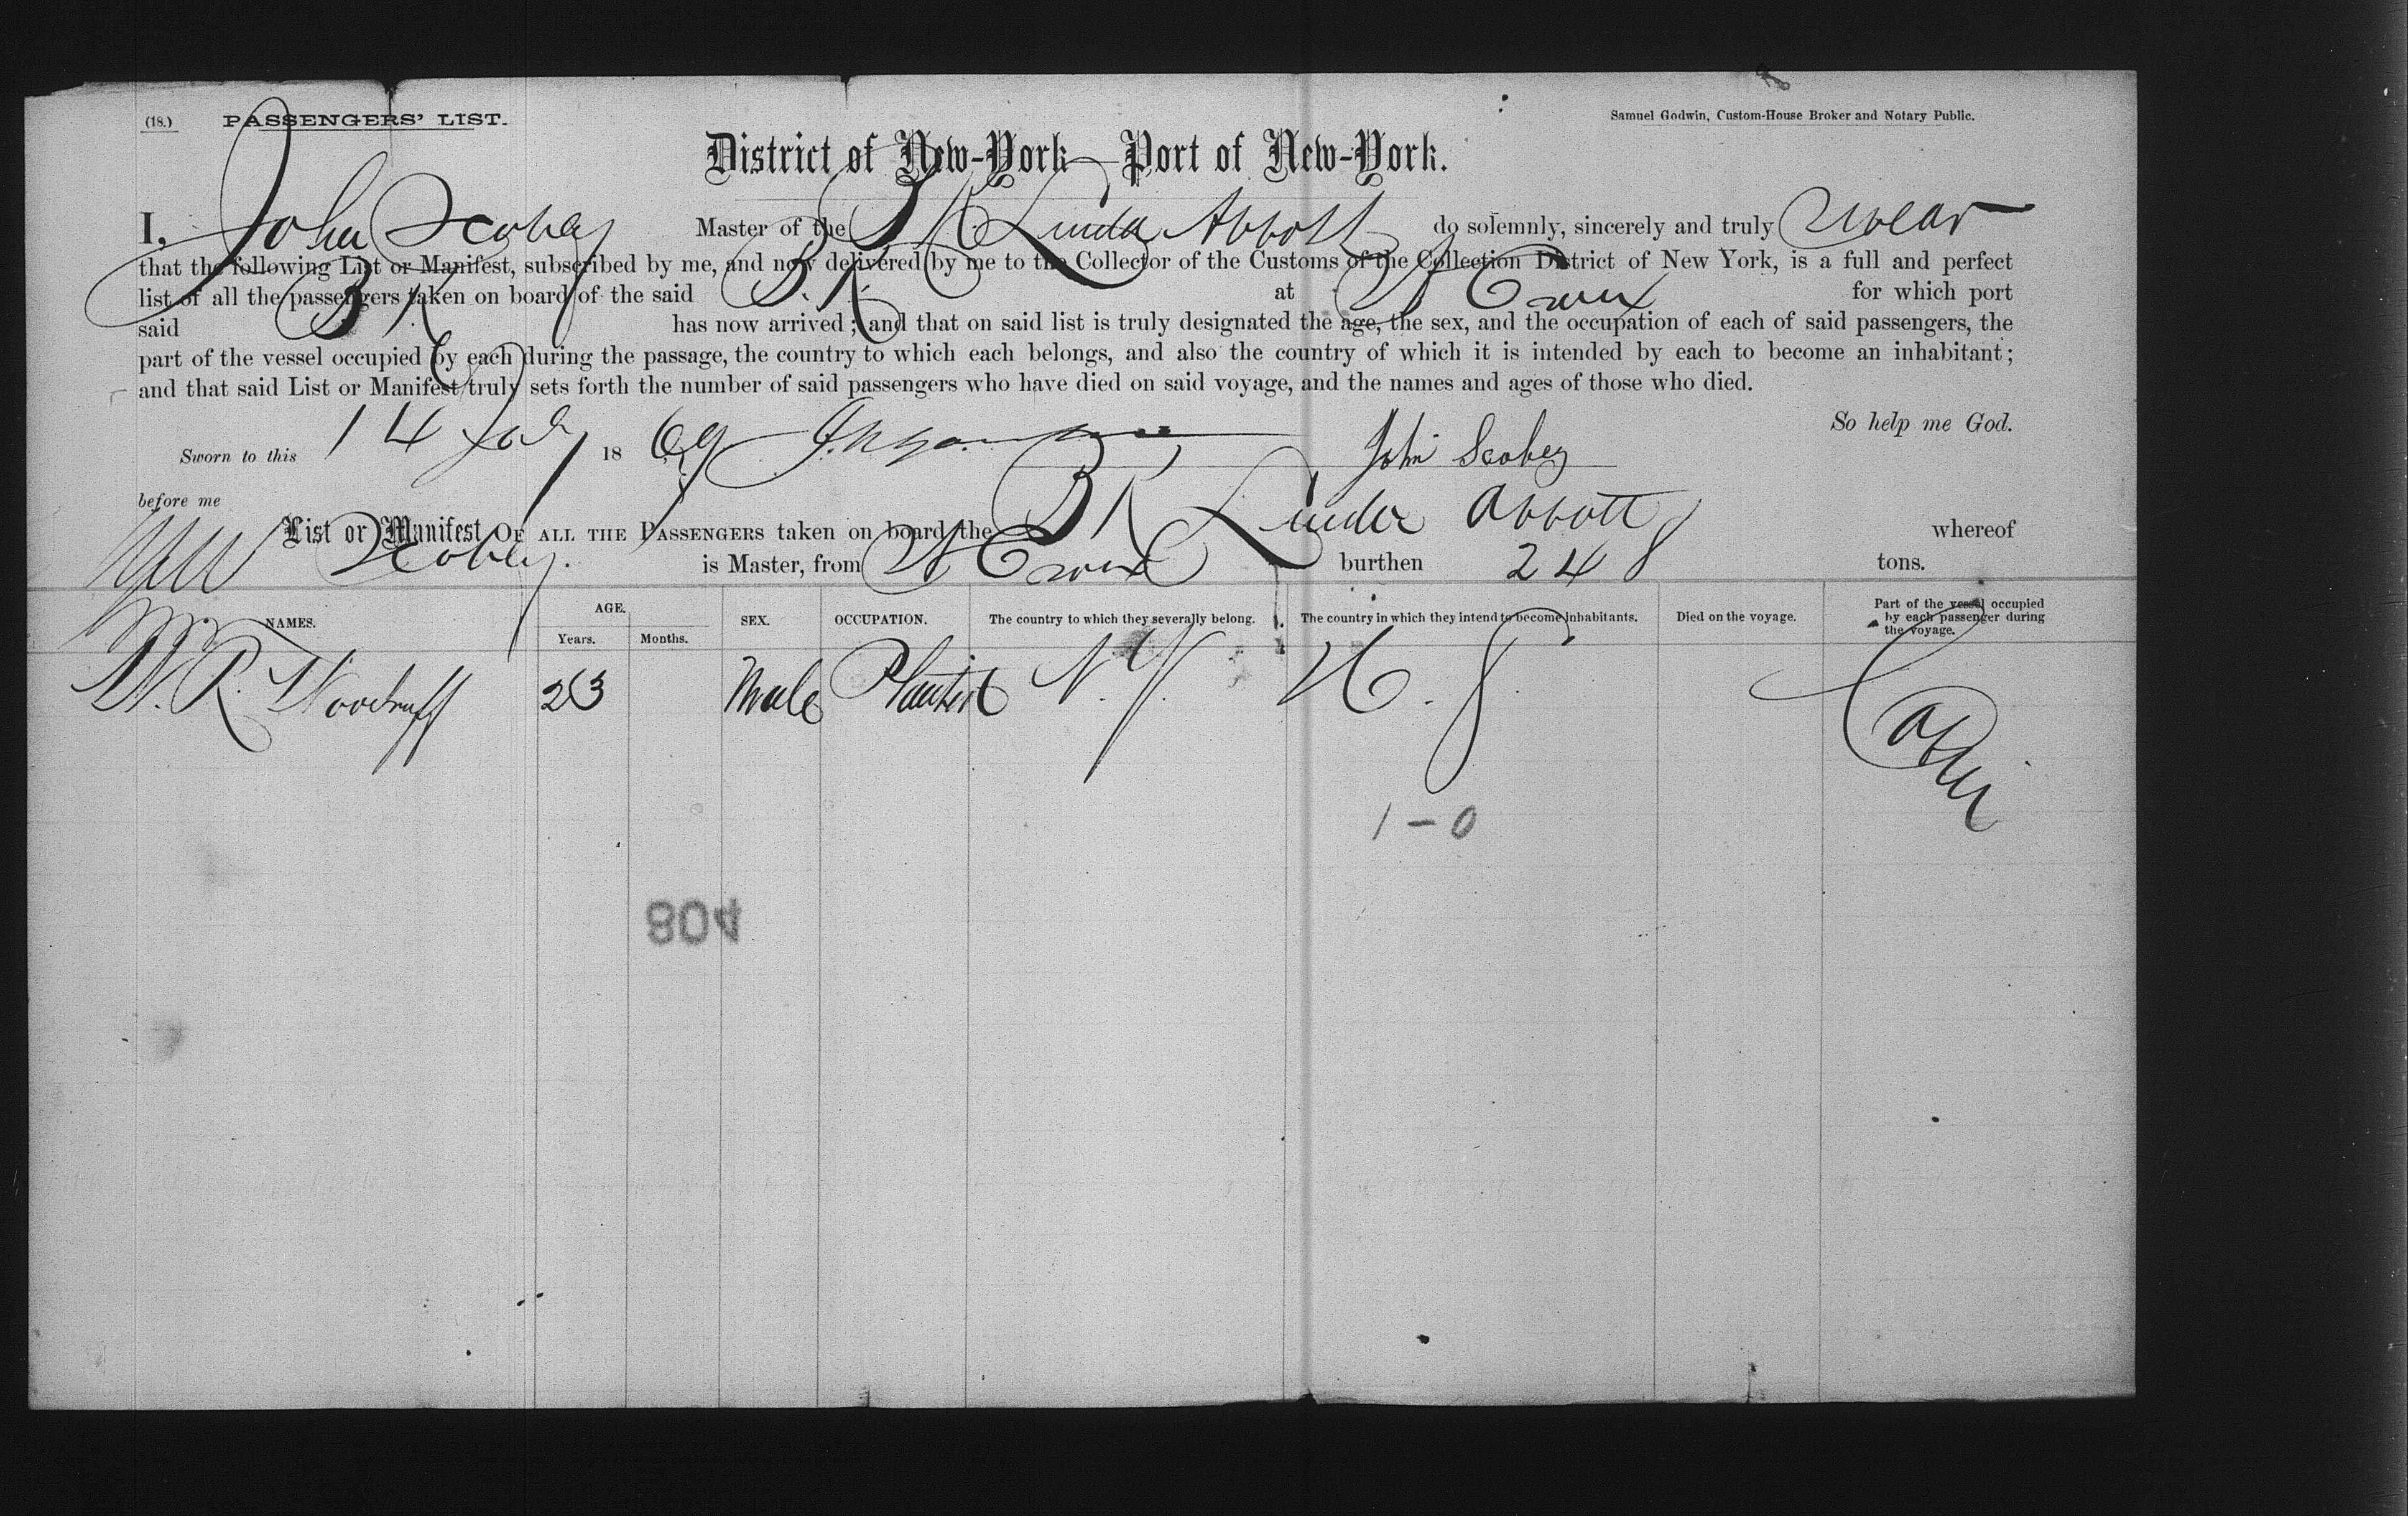 (18.) PASSENGERS' LIST.
Samuel Godwin, Custom-House Broker and Notary Public.
District of New-York—Port of New-York.
I, John Scobey Master of the Bk Linda Abbott do solemnly, sincerely and truly swear
that the following List or Manifest, subscribed by me, and now delivered by me to the Collector of the Customs of the Collection District of New York, is a full and perfect
list of all the passengers taken on board of the said Bk at St Croix for which port
said Bk has now arrived; and that on said list is truly designated the age, the sex, and the occupation of each of said passengers, the
part of the vessel occupied by each during the passage, the country to which each belongs, and also the country of which it is intended by each to become an inhabitant;
and that said List or Manifest truly sets forth the number of said passengers who have died on said voyage, and the names and ages of those who died.
So help me God.
Sworn to this 14 1869 John Scobey
before me
List or Manifest OF ALL THE PASSENGERS taken on board the Bk Linda Abbott whereof
Scobey is Master, from St Croix burthen 248 tons.
NAMES. AGE. Years. Months. SEX. OCCUPATION. The country to which they severally belong. The country in which they intend to become inhabitants. Died on the voyage. Part of the vessel occupied by each passenger during the voyage.
W. R. Woodruff 23 Male Planter N.Y. Cabin
1-0
804